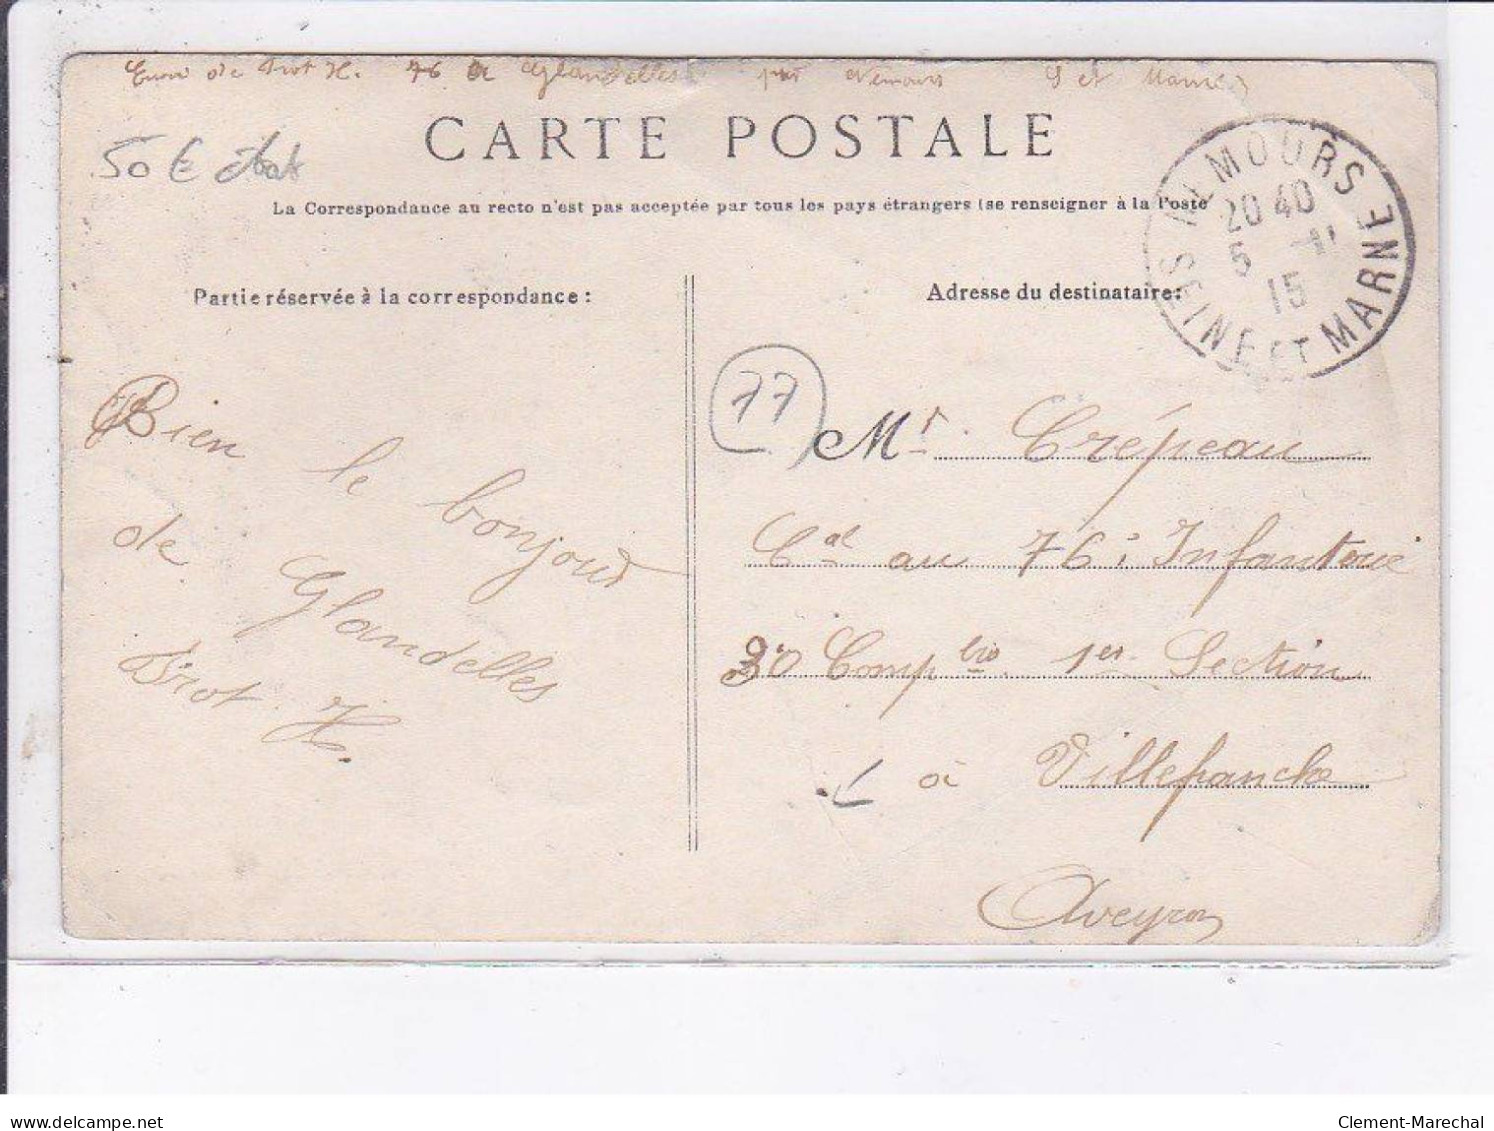 Envoi de Prot H. 76 à Glandelles par Nemours S et Marne
CARTE POSTALE
50 € état
La Correspondance au recto n'est pas acceptée par tous les pays étrangers (se renseigner à la Poste
NEMOURS
20 40
5 -11
15
SEINE ET MARNE
Partie réservée à la correspondance :
Adresse du destinataire:
77
Bien le bonjour
de Glandelles
Prot H.
Mr. Crépeau
Cal au 76e Infanterie
30 Comp 1er Section
à Villefranche
Aveyron
delcampe.net
Clement-Marechal